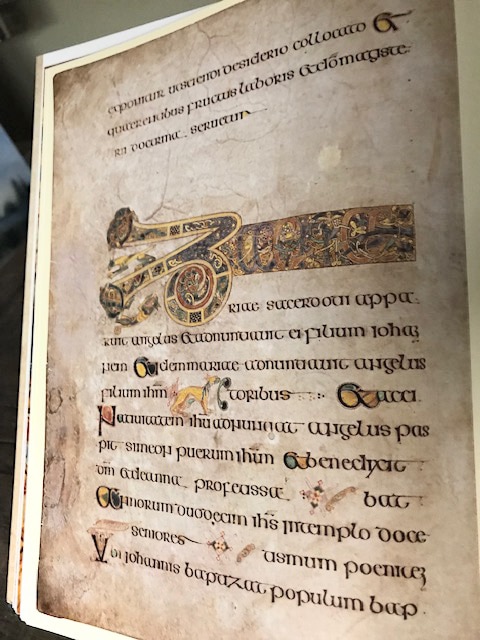 exponitur utsciendi desiderio collocato et
quaerentibus fructus laboris et dō magiste
rii doctrina seruetur
ZACHA
riae sacerdoti appa
ruit angelus et adnuntiauit ei filium iohan
nem et idem mariae adnuntiauit angelus
filium ihm toribus et acci
Natiuitatem ihu adnuntiat angelus pas
pit simeon puerum ihm et benedixit
dm et de anna profetissa bat
Annorum duodecim ihs in templo doce
seniores tismum poeniten
Ubi iohannis baptizat populum bap